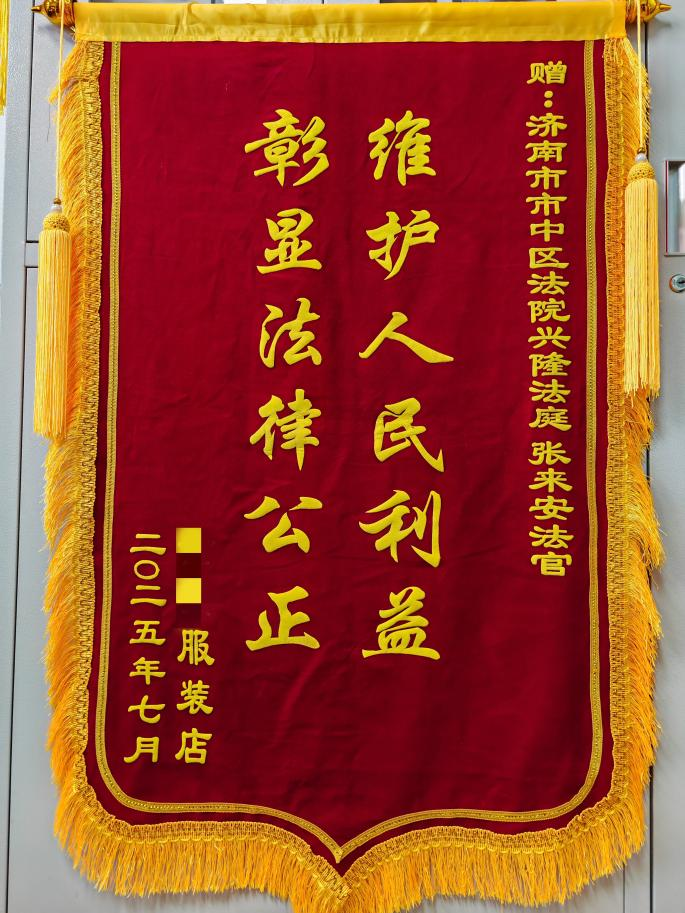 赠：济南市市中区法院兴隆法庭 张来安法官
维护人民利益
彰显法律公正
服装店
二〇二五年七月